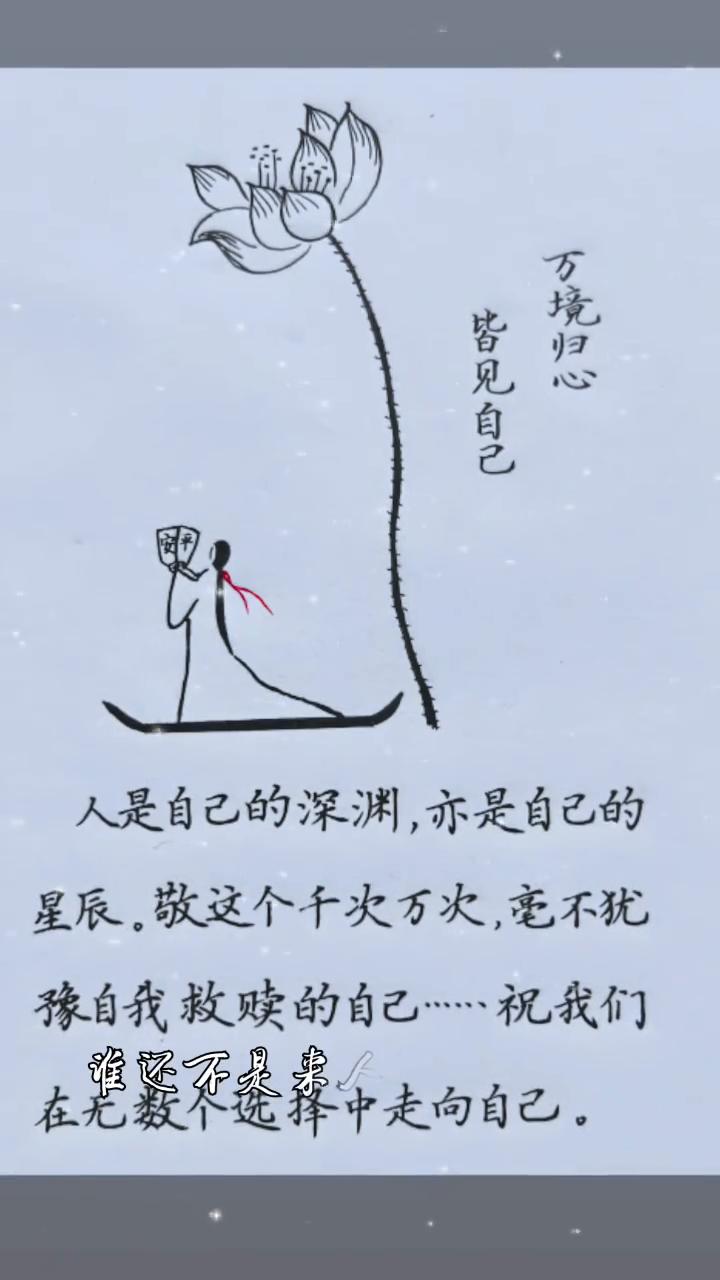 万境归心
皆见自己
安平
人是自己的深渊,亦是自己的
星辰。敬这个千次万次,毫不犹
豫自我救赎的自己……祝我们
谁还不是来人
在无数个选择中走向自己。